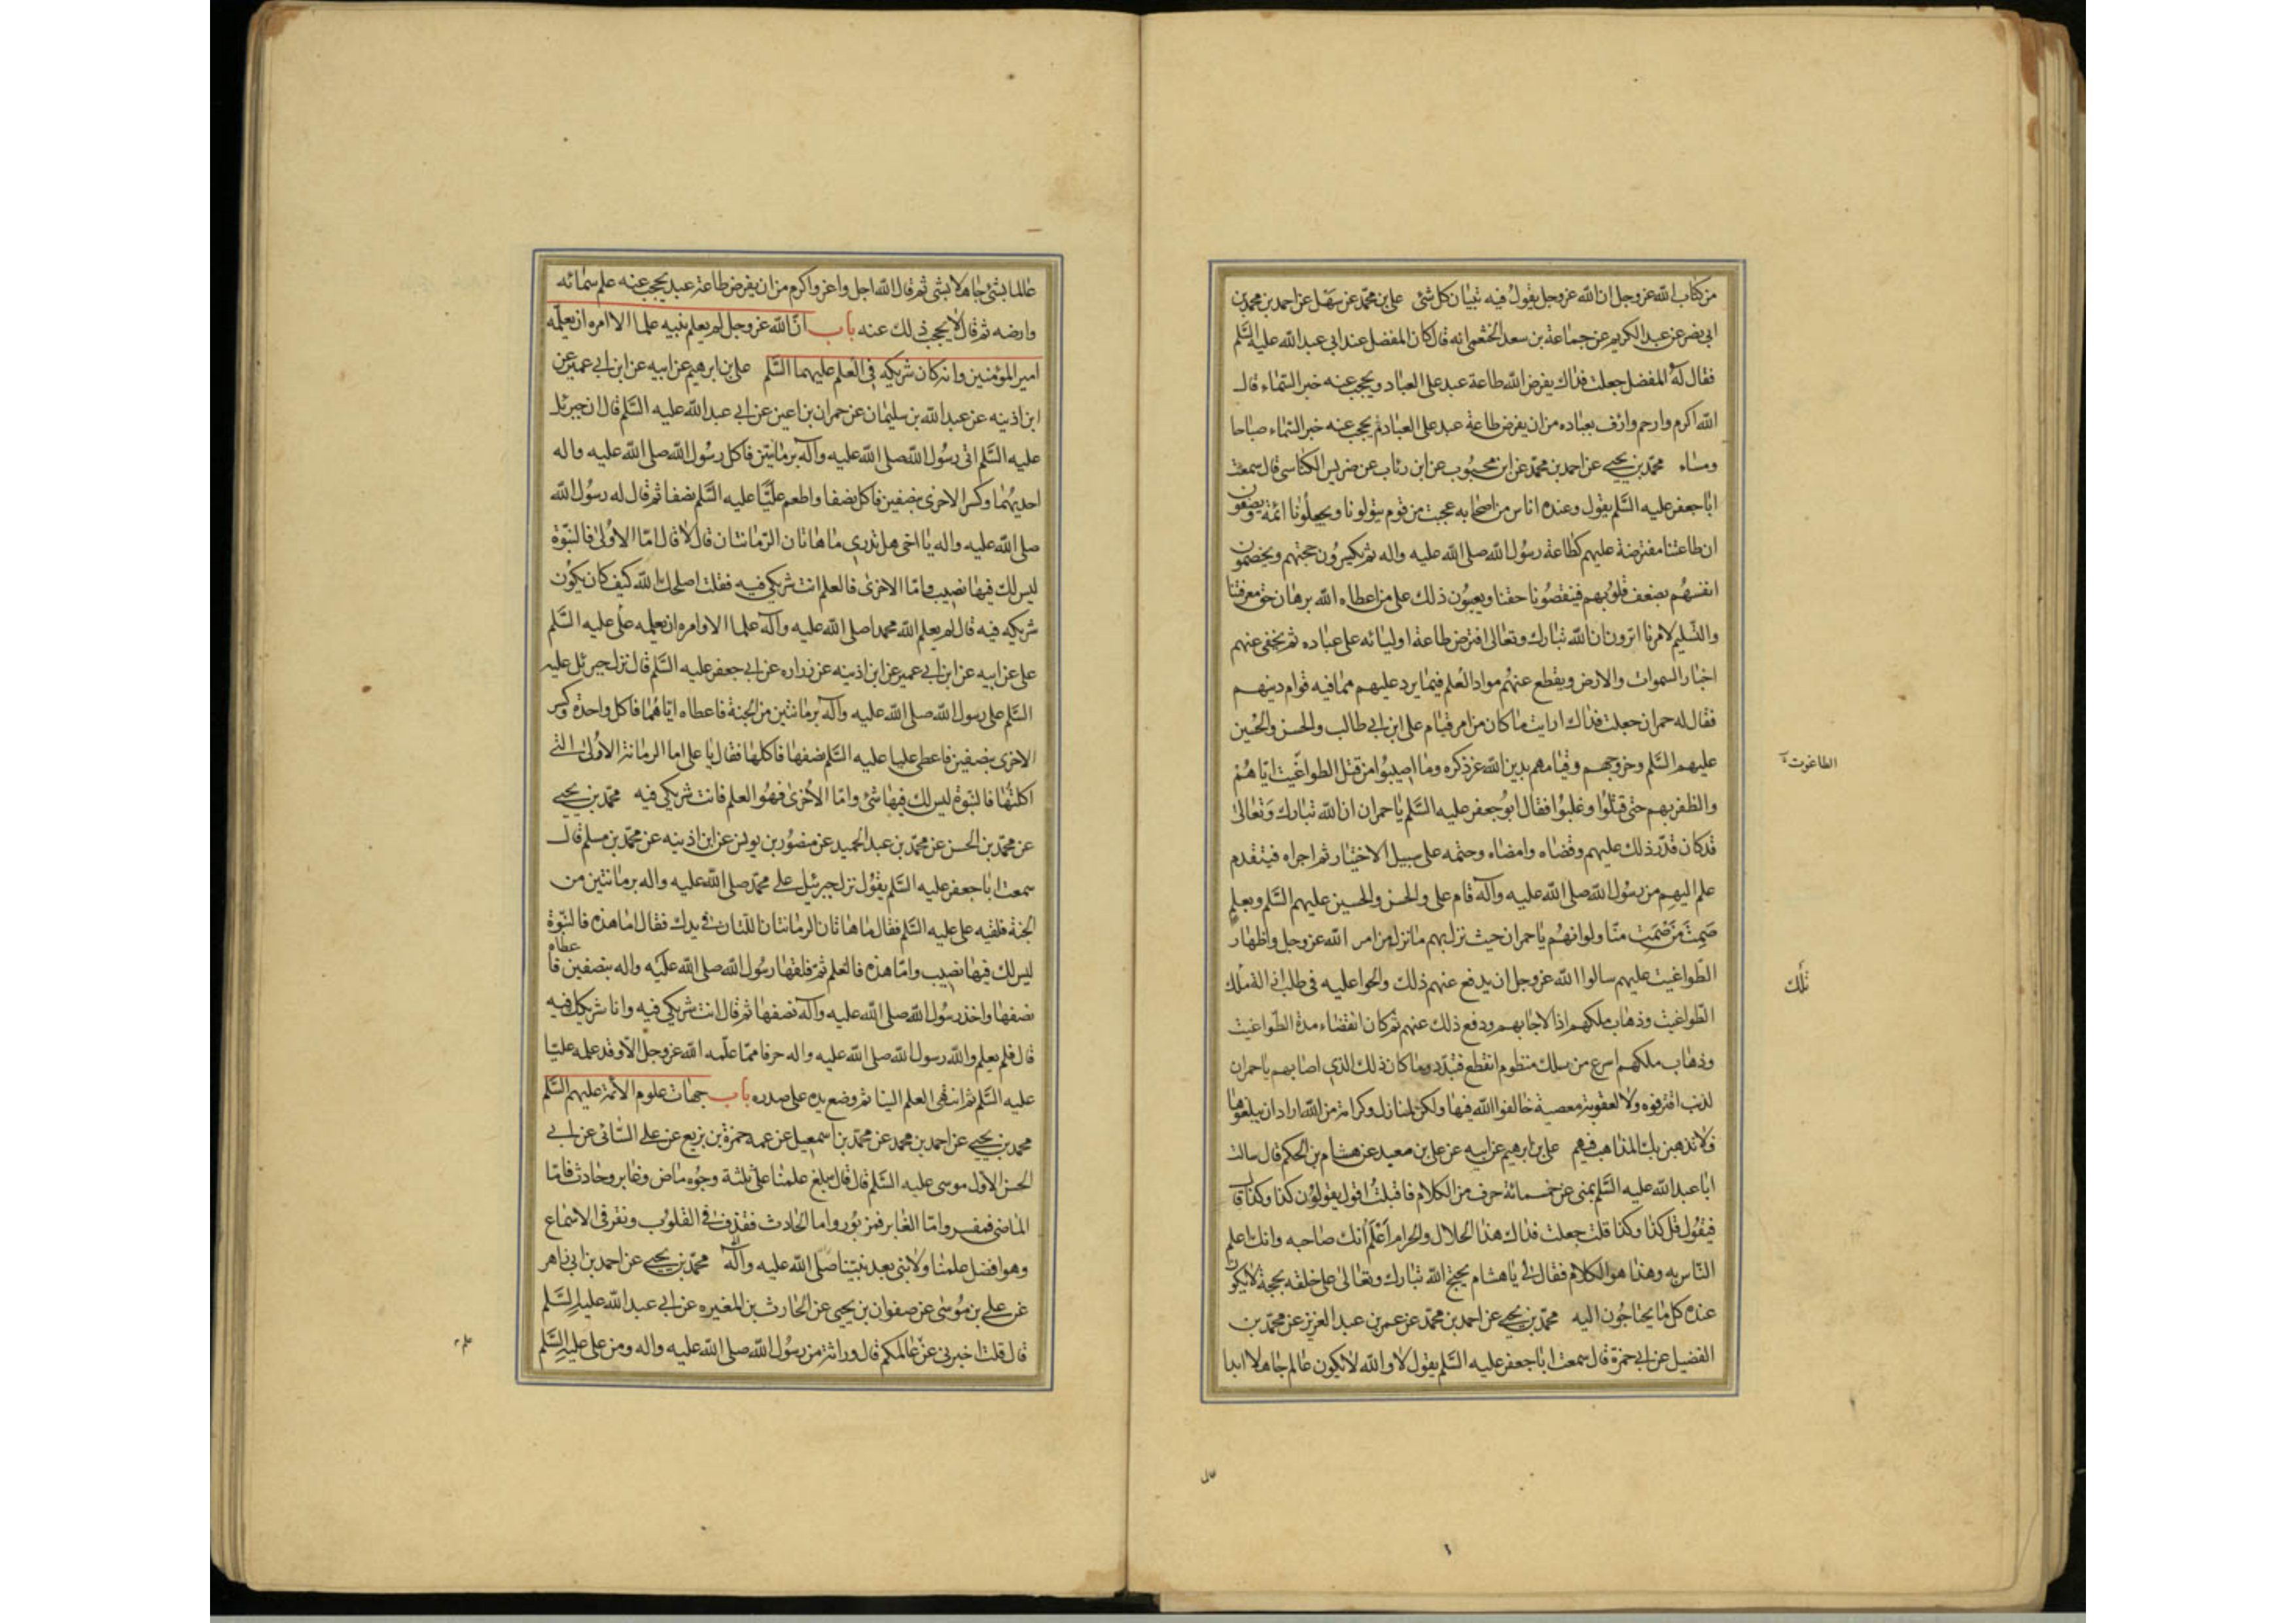 من كتاب الله عز وجل ان الله عز وجل يقول فيه تبيان كل شئ علي بن محمد عن سهل عن احمد بن محمد بن
ابي نصر عن عبد الكريم عن جماعة بن سعد الخثعمي انه قال كان المفضل عند ابي عبد الله عليه السلم
فقال له المفضل جعلت فداك يفرض الله طاعة عبد على العباد ويحجب عنه خبر السماء قال
الله اكرم وارحم وارف بعباده من ان يفرض طاعة عبد على العباد ثم يحجب عنه خبر السماء صباحا
ومساء محمد بن يحيى عن احمد بن محمد عن ابن محبوب عن ابن رئاب عن ضريس الكناسي قال سمعت
ابا جعفر عليه السلم يقول وعنده اناس من اصحابه عجبت من قوم يتولونا ويجعلونا ائمة ويصفون
ان طاعتنا مفترضة عليهم كطاعة رسول الله صلى الله عليه واله ثم يكسرون حجتهم ويخصمون
انفسهم بضعف قلوبهم فينقصونا حقنا ويعيبون ذلك على من اعطاه الله برهان حق معرفتنا
والتسليم لامرنا اترون ان الله تبارك وتعالى افترض طاعة اوليائه على عباده ثم يخفى عنهم
اخبار السموات والارض ويقطع عنهم مواد العلم فيما يرد عليهم مما فيه قوام دينهم
فقال له حمران جعلت فداك ارايت ما كان من امر قيام على ابن ابي طالب والحسن والحسين
عليهم السلم وخروجهم وقيامهم بدين الله عز ذكره وما اصيبوا من قتل الطواغيت اياهم
الطاغوت
والظفر بهم حتى قتلوا وغلبوا فقال ابو جعفر عليه السلم يا حمران ان الله تبارك وتعالى
قد كان قدر ذلك عليهم وقضاه وامضاه وحتمه على سبيل الاختيار ثم اجراه فبتقدم
علم اليهم من رسول الله صلى الله عليه وآله قام على والحسن والحسين عليهم السلم وبعلم
صمت من صمت منا ولو انهم يا حمران حيث نزل بهم ما نزل من امر الله عز وجل واظهار
الطواغيت عليهم سالوا الله عز وجل ان يدفع عنهم ذلك والحوا عليه في طلب ازالة ملك
تلك
الطواغيت وذهاب ملكهم اذا لاجابهم ودفع ذلك عنهم ثم كان انقضاء مدة الطواغيت
وذهاب ملكهم اسرع من سلك منظوم انقطع فتبدد وما كان ذلك الذي اصابهم يا حمران
لذنب اقترفوه ولا لعقوبة معصية خالفوا الله فيها ولكن لمنازل وكرامة من الله اراد ان يبلغوها
فلا تذهبن بك المذاهب فيهم علي بن ابرهيم عن ابيه عن علي بن معبد عن هشام بن الحكم قال سالت
ابا عبد الله عليه السلم بمنى عن خمسمائة حرف من الكلام فاقبلت اقول يقولون كذا وكذا قال
فيقول قل كذا وكذا قلت جعلت فداك هذا الحلال والحرام اعلم انك صاحبه وانك اعلم
الناس به وهذا هو الكلام فقال لي يا هشام يحتج الله تبارك وتعالى على خلقه بحجة لا يكون
عنده كل ما يحتاجون اليه محمد بن يحيى عن احمد بن محمد عن عمر بن عبد العزيز عن محمد بن
الفضيل عن ابي حمزة قال سمعت ابا جعفر عليه السلم يقول لا والله لا يكون عالم جاهلا ابدا
عالما بشئ جاهلا بشئ ثم قال الله اجل واعز واكرم من ان يفرض طاعة عبد يحجب عنه علم سمائه
وارضه ثم قال لا يحجب ذلك عنه باب ان الله عز وجل لم يعلم نبيه علما الا امره ان يعلمه
امير المؤمنين وانه كان شريكه في العلم عليهما السلم علي بن ابرهيم عن ابيه عن ابن ابي عمير عن
ابن اذينه عن عبد الله بن سليمان عن حمران بن اعين عن ابي عبد الله عليه السلم قال ان جبرئل
عليه السلم اتى رسول الله صلى الله عليه وآله برمانتين فاكل رسول الله صلى الله عليه واله
احديهما وكسر الاخرى بنصفين فاكل نصفا واطعم عليا عليه السلم نصفا ثم قال له رسول الله
صلى الله عليه واله يا اخى هل تدرى ما هاتان الرمانتان قال لا قال اما الاولى فالنبوة
ليس لك فيها نصيب واما الاخرى فالعلم انت شريكي فيه فقلت اصلحك الله كيف كان يكون
شريكه فيه قال لم يعلم الله محمدا صلى الله عليه وآله علما الا وامره ان يعلمه على عليه السلم
على عن ابيه عن ابن ابي عمير عن ابن اذينه عن زراره عن ابي جعفر عليه السلم قال نزل جبرئل عليه
السلم على رسول الله صلى الله عليه وآله برمانتين من الجنة فاعطاه اياهما فاكل واحدة وكسر
الاخرى بنصفين فاعطى عليا عليه السلم نصفها فاكلها فقال يا على اما الرمانة الاولى التي
اكلتها فالنبوة ليس لك فيها شئ واما الاخرى فهو العلم فانت شريكي فيه محمد بن يحيى
عن محمد بن الحسن عن محمد بن عبد الحميد عن منصور بن يونس عن ابن اذينه عن محمد بن مسلم قال
سمعت ابا جعفر عليه السلم يقول نزل جبرئيل على محمد صلى الله عليه واله برمانتين من
الجنة فلقيه على عليه السلم فقال ما هاتان الرمانتان اللتان في يدك فقال اما هذه فالنبوة
ليس لك فيها نصيب واما هذه فالعلم ثم فلقها رسول الله صلى الله عليه واله بنصفين فاعطاه
نصفها واخذ رسول الله صلى الله عليه وآله نصفها ثم قال انت شريكي فيه وانا شريكك فيه
قال فلم يعلم والله رسول الله صلى الله عليه واله حرفا مما علمه الله عز وجل الا وقد علمه عليا
عليه السلم ثم انتهى العلم الينا ثم وضع يده على صدره باب جهات علوم الائمة عليهم السلم
محمد بن يحيى عن احمد بن محمد عن محمد بن اسمعيل عن عمه حمزة بن بزيع عن على السائى عن ابي
الحسن الاول موسى عليه السلم قال قال مبلغ علمنا على ثلثة وجوه ماض وغابر وحادث فاما
الماضى فمفسر واما الغابر فمزبور واما الحادث فقذف في القلوب ونقر في الاسماع
وهو افضل علمنا ولا نبى بعد نبينا صلى الله عليه وآله محمد بن يحيى عن احمد بن ابي زاهر
عن علي بن موسى عن صفوان بن يحيى عن الحارث بن المغيره عن ابي عبد الله عليه السلم
قال قلت اخبرني عن عالمكم قال وراثة من رسول الله صلى الله عليه واله ومن على عليه السلم
علم